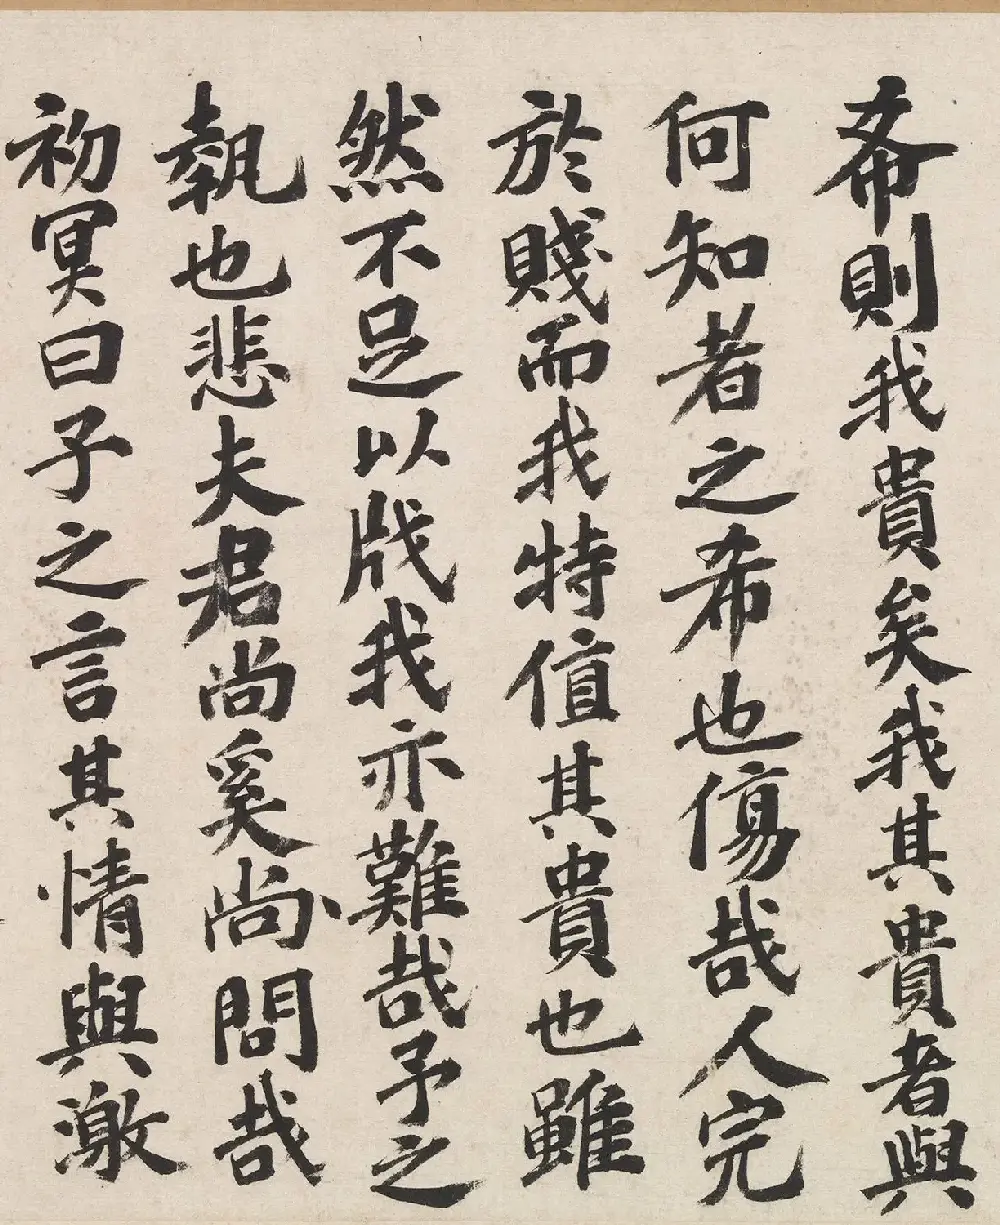 希則我貴矣我其貴者與
何知者之希也傷哉人完
於賤而我特值其貴也雖
然不足以戕我亦難哉予之
執也悲夫君尚奚尚問哉
初冥曰子之言其情與激